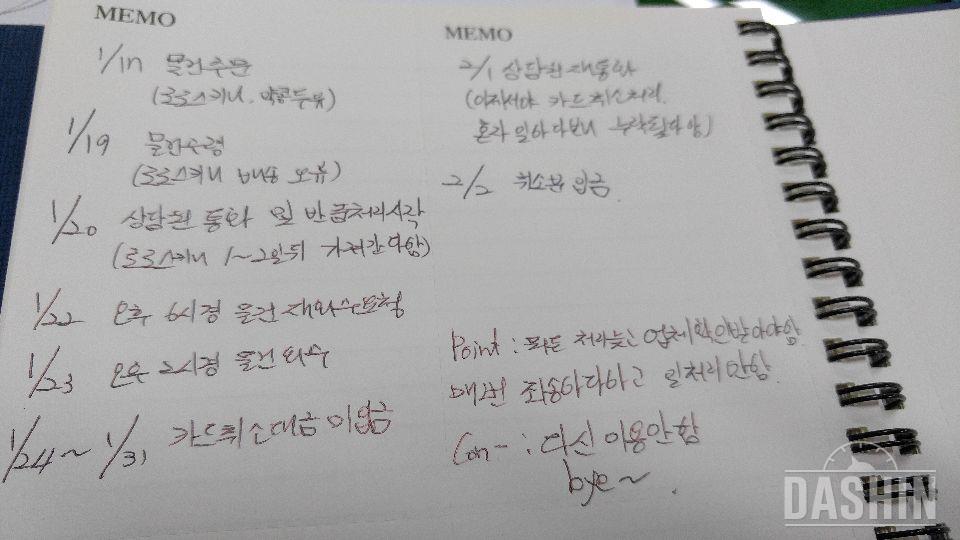 MEMO
1/17 물건주문
(로로스키니, 약콩두유)
1/19 물건수령
(로로스키니 배송 오류)
1/20 상담원 통화 및 반품처리시작
(로로스키니 1~2일뒤 가져간다함)
1/22 오후 6시경 물건 재회수요청
1/23 오후 2시경 물건 회수
1/24 ~ 1/31 카드취소대금 미입금
MEMO
2/1 상담원 재통화
(이제서야 카드취소처리.
혼자 일하다보니 누락됐다함)
2/2 취소분 입금.
Point : 처리늦는 업체 확인받아야함.
매번 죄송하다하고 일처리안함.
Con- : 다신 이용안함
bye~.
DASHIN